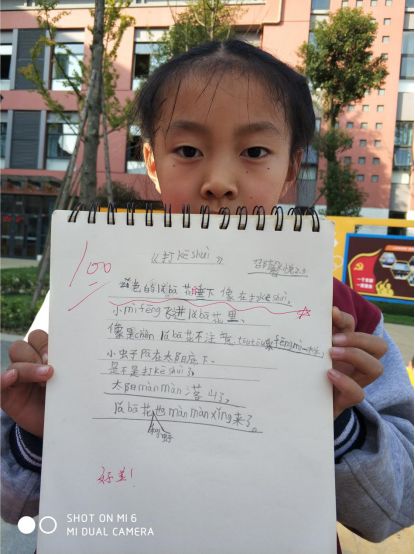 《打kēshuì》
100
蓝色的lǎbā花垂下像在打kēshuì。
小mìfēng飞进lǎbā花里、
像是chèn lǎbā花不注意,tōutōu
小虫子趴在太阳底下、
是不是打kēshuì了
太阳mànmàn落山了。
lǎbā花也mànmànxǐng来了。
好美!
SHOT ON MI 6
MI DUAL CAMERA